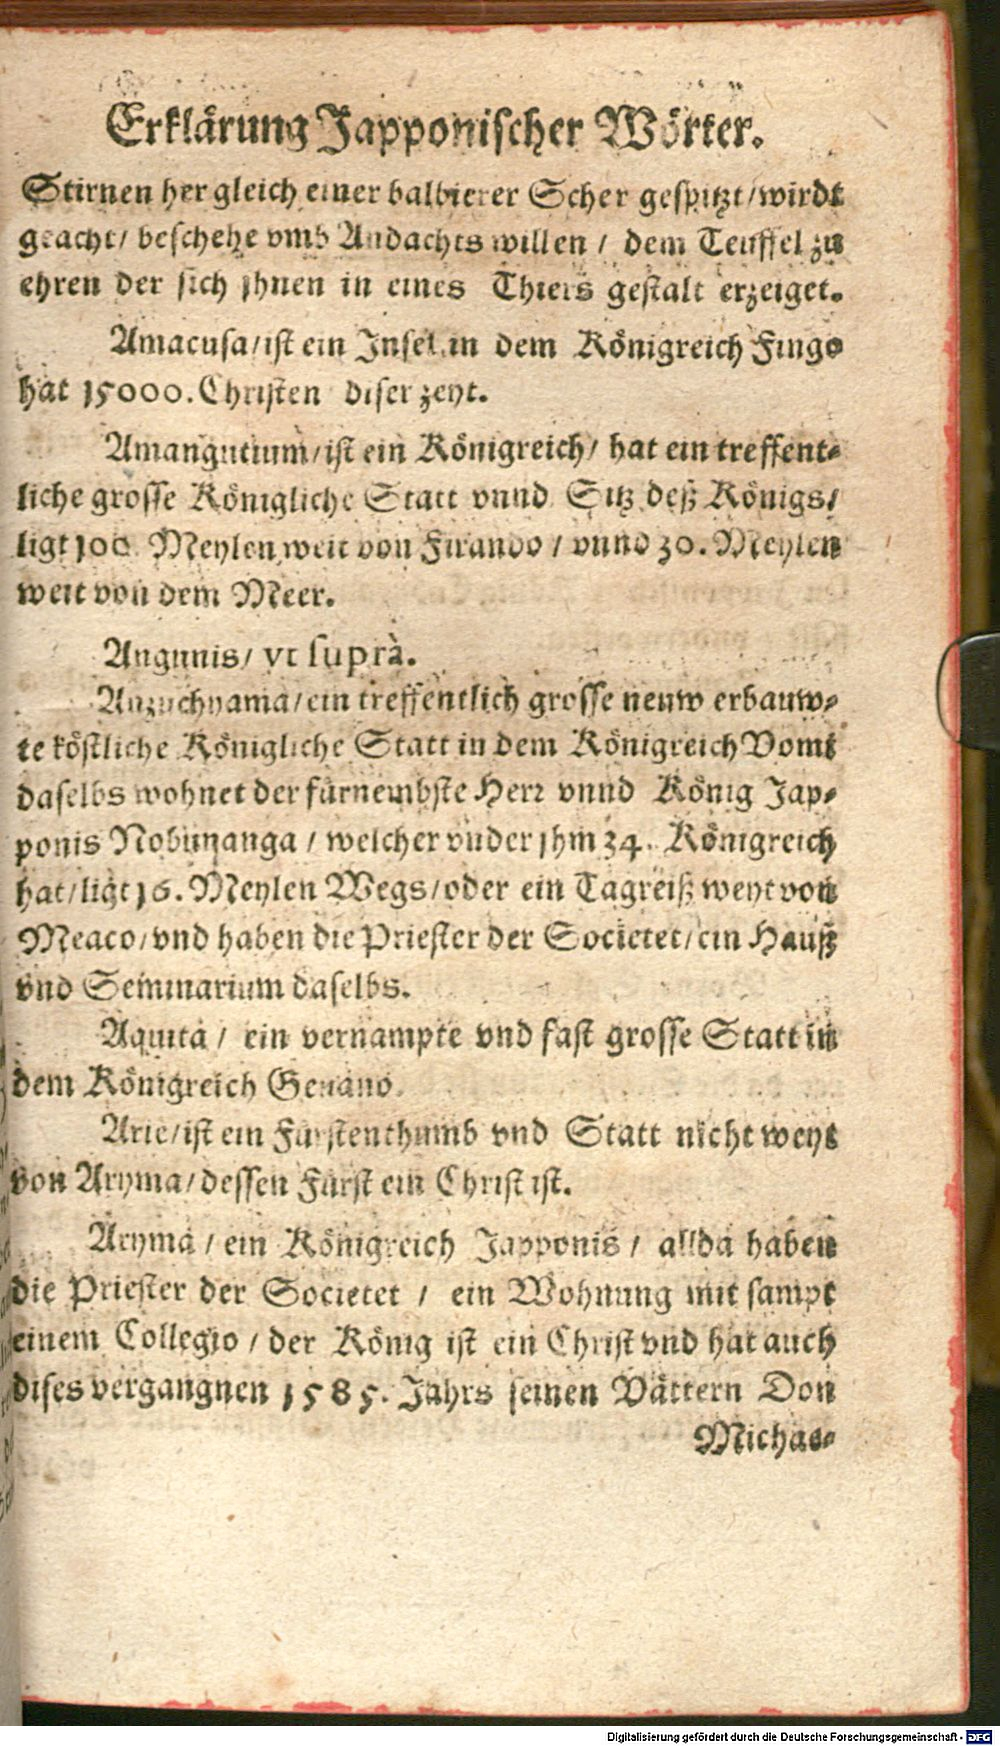 Erklärung Japponischer Wörter.
Stirnen her gleich einer balbierer Scher gespitzt/wirdt
geacht/ beschehe vmb Andachts willen / dem Teuffel zu
ehren der sich jhnen in eines Thiers gestalt erzeiget.
Amacusa/ist ein Insel in dem Königreich Fingo
hat 15000. Christen diser zeyt.
Amangutium/ist ein Königreich/ hat ein treffent-
liche grosse Königliche Statt vnnd Sitz deß Königs/
ligt 100 Meylen weit von Firando / vnnd 30. Meylen
weit von dem Meer.
Angunis/ vt suprà.
Anzuchyama/ein treffentlich grosse neuw erbauw-
te köstliche Königliche Statt in dem Königreich Vomi
daselbs wohnet der fürnembste Herr vnnd König Jap-
ponis Nobunanga / welcher vnder jhm 34. Königreich
hat/ligt 16. Meylen Wegs/oder ein Tagreiß weyt von
Meaco/vnd haben die Priester der Societet/ein Hauß
vnd Seminarium daselbs.
Aquita / ein vernampte vnd fast grosse Statt in
dem Königreich Genano.
Arie/ist ein Fürstenthumb vnd Statt nicht weyt
von Aryma/dessen Fürst ein Christ ist.
Aryma / ein Königreich Japponis / allda haben
die Priester der Societet / ein Wohnung mit sampt
einem Collegio / der König ist ein Christ vnd hat auch
dises vergangnen 1585. Jahrs seinen Vättern Don
Michae-
Digitalisierung gefördert durch die Deutsche Forschungsgemeinschaft - DFG